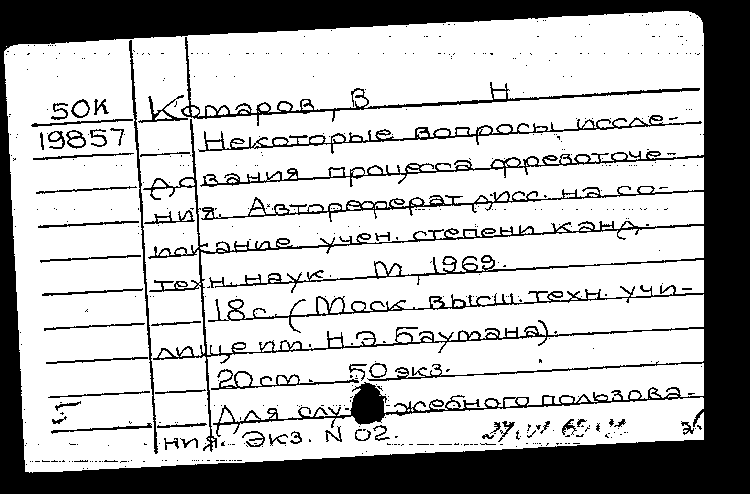 50К Комаров, В Н
19857 Некоторые вопросы иссле-
дования процесса форезоточе-
ния. Автореферат дисс. на со-
искание учен. степени канд.
техн. наук. М, 1969.
18с. (Моск. высш. техн. учи-
лище им. Н.Э. Баумана).
20 cm. 50 экз.
Для служебного пользова-
ния. Экз. N 02.